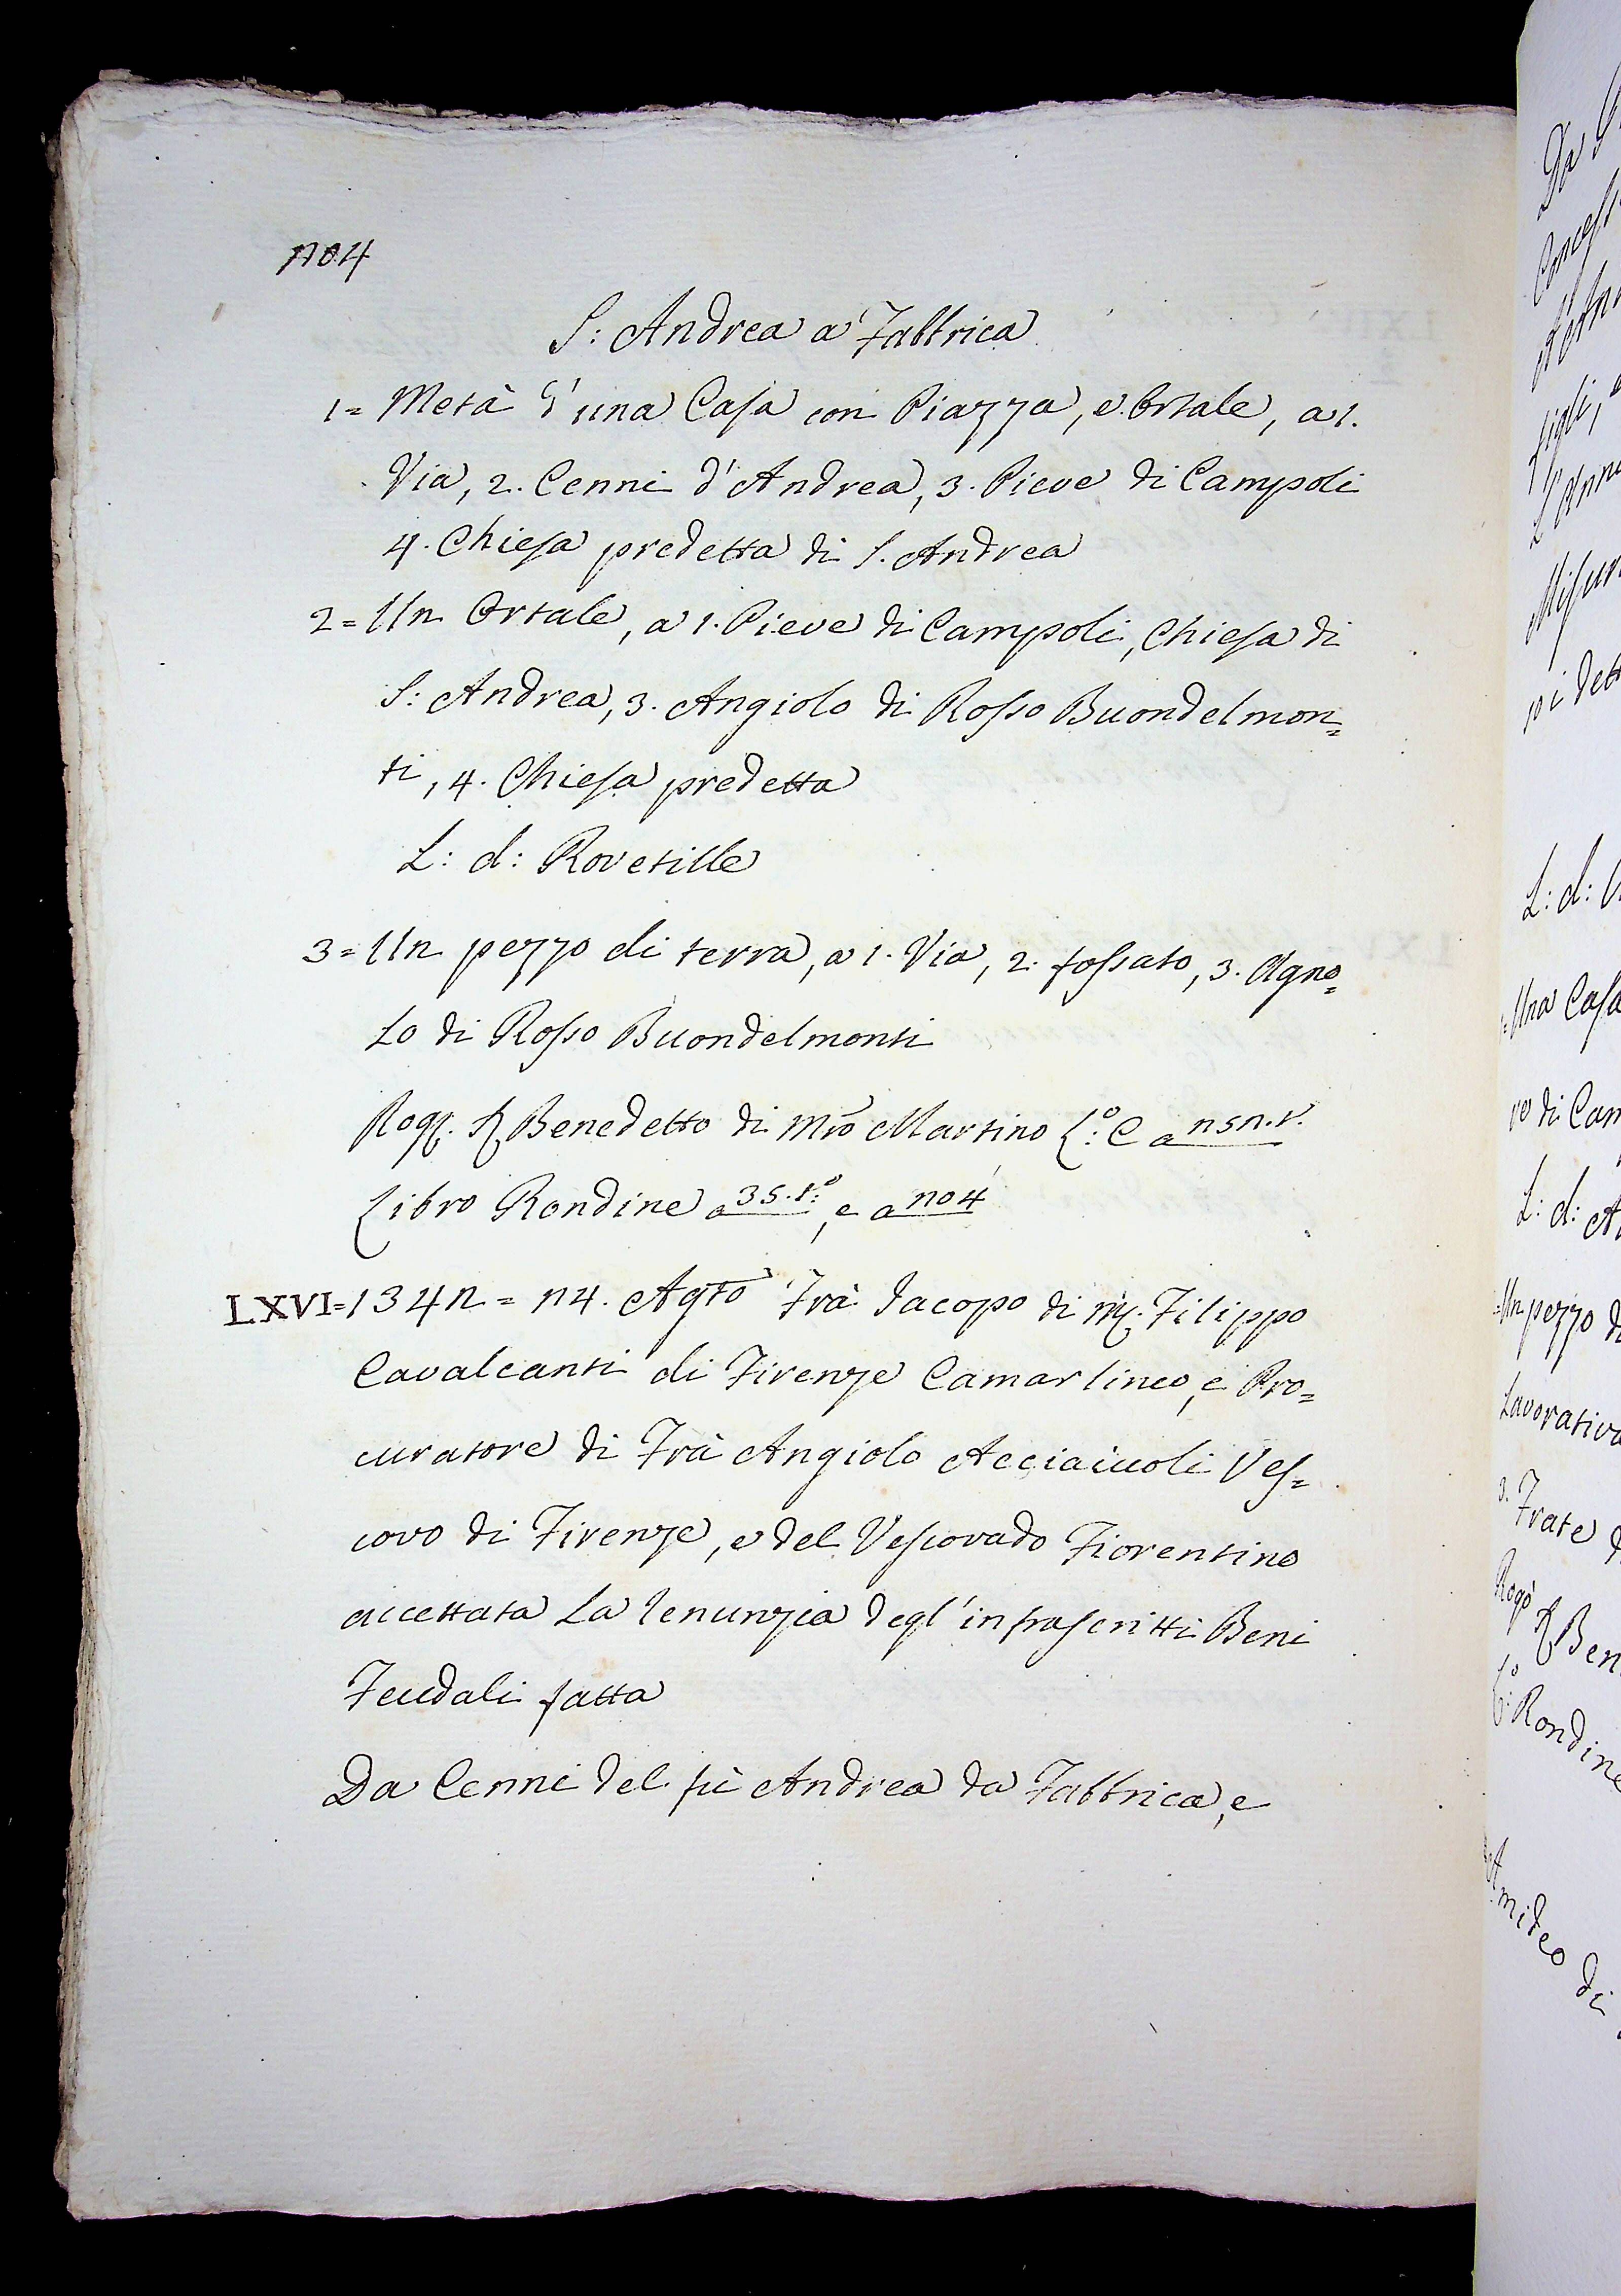 1704
S: Andrea a Fabbrica
1= Metà d'una Casa con Piazza, e Ortale, a 1.
Via, 2. Cenni d'Andrea, 3. Pieve di Campoli
4. Chiesa predetta di S. Andrea
2= Un Ortale, a 1. Pieve di Campoli, Chiesa di
S: Andrea, 3. Angiolo di Rosso Buondelmon=
ti, 4. Chiesa predetta
L: d: Rovetille
3= Un pezzo di terra, a 1. Via, 2. fossato, 3. Agno=
lo di Rosso Buondelmonti
Rog. Benedetto di Mro Martino L:o C a
Libro Rondine a 35.t:o, e a
LXVI= Agto Frà Jacopo di M. Filippo
Cavalcanti di Firenze Camarlineo, e Pro=
curatore di Frà Angiolo Acciaiuoli Ves=
covo di Firenze, e del Vescovado Fiorentino
accettata la renunzia degl'infrascritti Beni
Feudali fatta
Da Cenni del fù Andrea da Fabbrica, e
L: d:
Una Casa
L: d:
Un pezzo di
Lavorativa
3. Frate
Rogò Ben
L:o Rondine
Amideo di